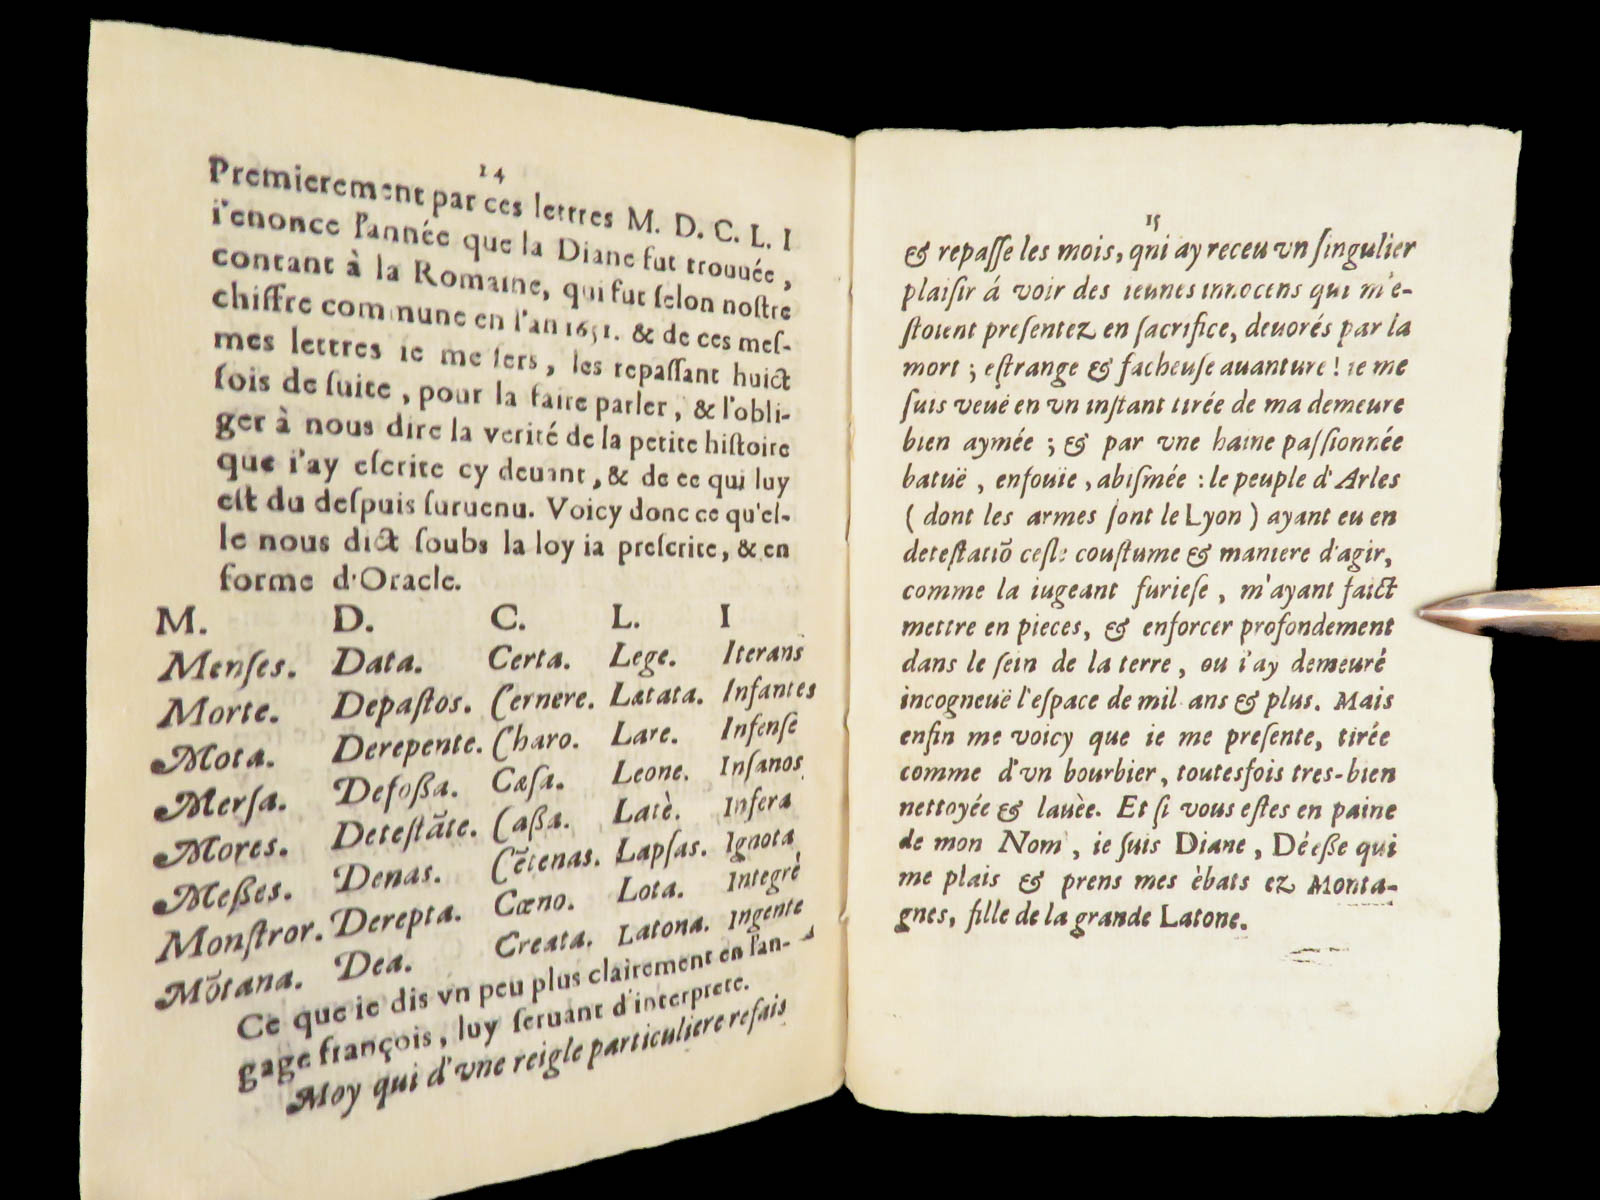 14
Premierement par ces lettres M. D. C. L. I
i'enonce l'année que la Diane fut trouuée,
contant à la Romaine, qui fut ſelon noſtre
chiffre commune en l'an 1651. & de ces meſ-
mes lettres ie me ſers, les repaſſant huict
fois de ſuite, pour la faire parler, & l'obli-
ger à nous dire la verité de la petite hiſtoire
que i'ay eſcrite cy deuant, & de ce qui luy
eſt du deſpuis ſuruenu. Voicy donc ce qu'el-
le nous dict ſoubs la loy ia preſcrite, & en
forme d'Oracle.
M. D. C. L. I
Menſes. Data. Certa. Lege. Iterans
Morte. Depaſtos. Cernere. Lætata. Infantes
Mota. Derepente. Charo. Lare. Infenſe
Merſa. Defoßa. Cæſa. Leone. Inſanos
Mores. Deteſtāte. Caßa. Latè. Infera
Meßes. Denas. Cētenas. Lapſas. Ignota
Monſtror. Derepta. Cœno. Lota. Integrè
Mōtana. Dea. Creata. Latona. Ingente
Ce que ie dis vn peu plus clairement en l'an-
gage françois, luy ſeruant d'interprete.
Moy qui d'vne reigle particuliere refais
15
& repaſſe les mois, qni ay receu vn ſingulier
plaiſir á voir des ieunes innocens qui m'e-
ſtoient preſentez en ſacrifice, deuorés par la
mort ; eſtrange & facheuſe auanture ! ie me
ſuis veuë en vn inſtant tirée de ma demeure
bien aymée ; & par vne haine paſſionnée
batuë, enfouïe, abiſmée : le peuple d'Arles
( dont les armes ſont le Lyon ) ayant eu en
deteſtatiō ceſte couſtume & maniere d'agir,
comme la iugeant furieſe, m'ayant faict
mettre en pieces, & enforcer profondement
dans le ſein de la terre, ou i'ay demeuré
incogneuë l'eſpace de mil ans & plus. Mais
enfin me voicy que ie me preſente, tirée
comme d'vn bourbier, toutesfois tres-bien
nettoyée & lauèe. Et ſi vous eſtes en paine
de mon Nom, ie ſuis Diane, Déeße qui
me plais & prens mes èbats ez Monta-
gnes, fille de la grande Latone.